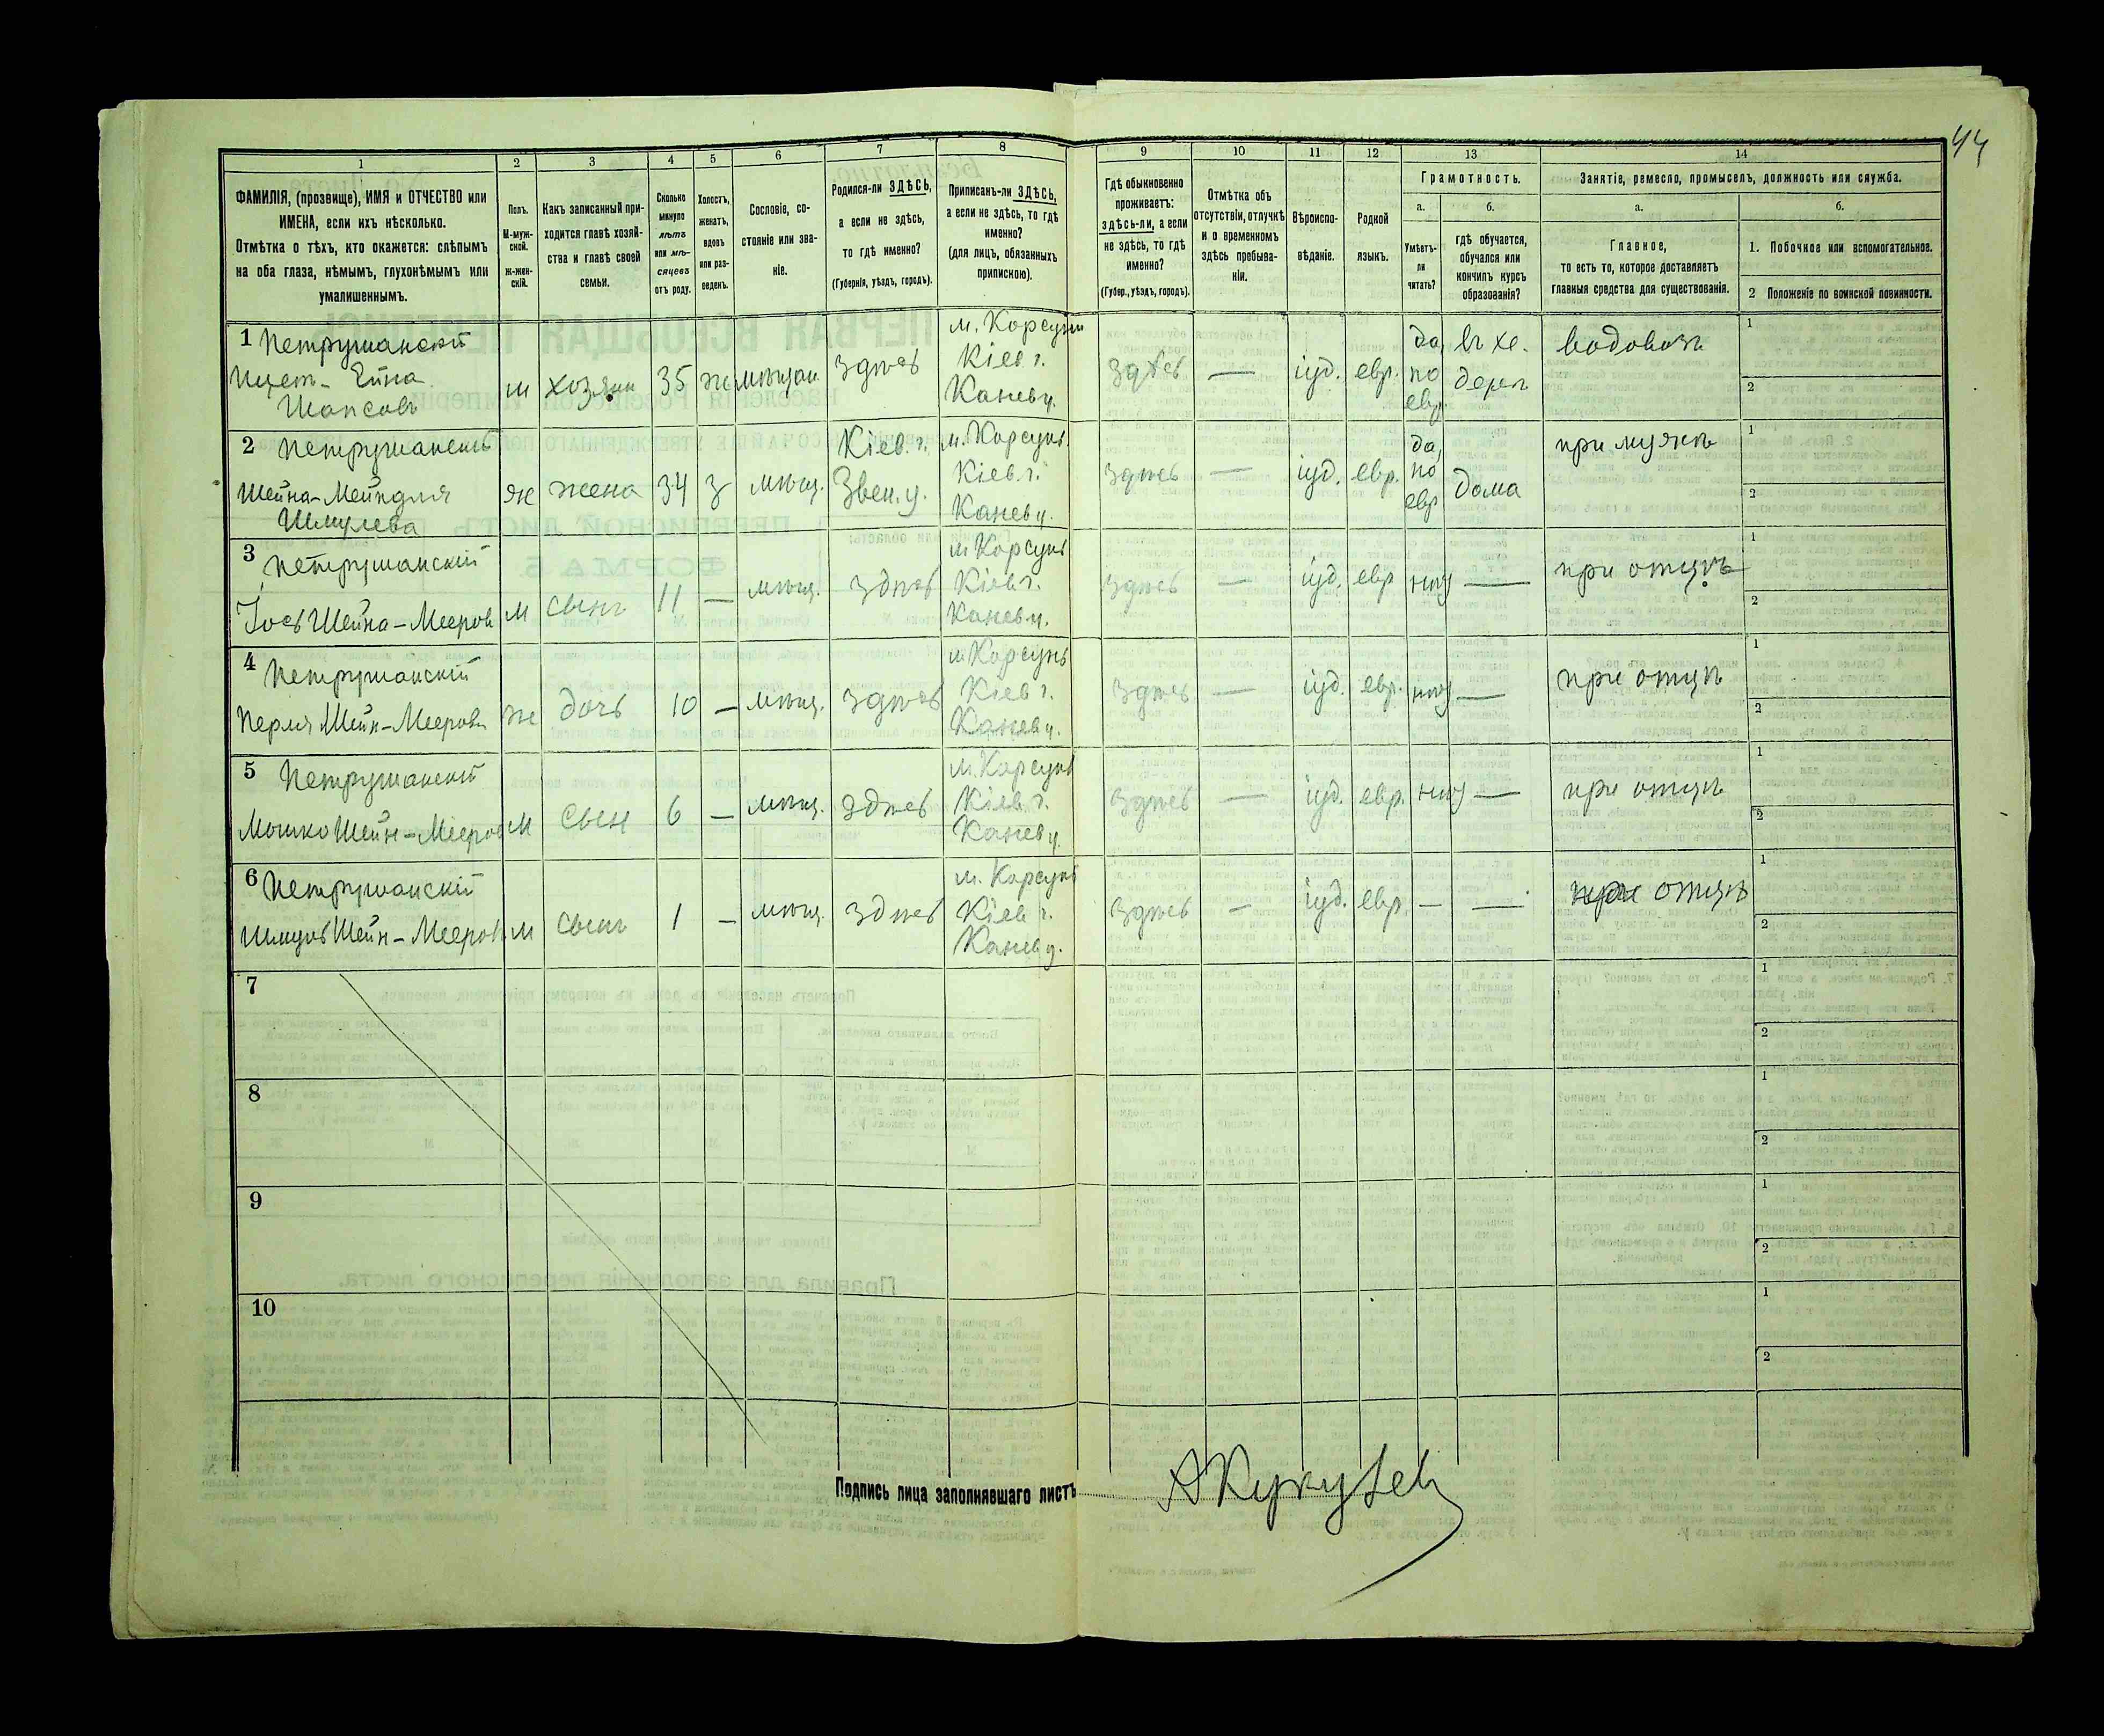 44
1 2 3 4 5 6 7 8 9 10 11 12 13 14
ФАМИЛІЯ, (прозвище), ИМЯ и ОТЧЕСТВО или
ИМЕНА, если ихъ нѣсколько.
Отмѣтка о тѣхъ, кто окажется: слѣпымъ
на оба глаза, нѣмымъ, глухонѣмымъ или
умалишеннымъ.
Полъ.
М-муж-
ской.
ж-жен-
скій.
Какъ записанный при-
ходится главѣ хозяй-
ства и главѣ своей
семьи.
Сколько
минуло
лѣтъ
или мѣ-
сяцевъ
отъ роду.
Холостъ,
женатъ,
вдовъ
или раз-
веденъ.
Сословіе, со-
стояніе или зва-
ніе.
Родился-ли ЗДѢСЬ,
а если не здѣсь,
то гдѣ именно?
(Губернія, уѣздъ, городъ).
Приписанъ-ли ЗДѢСЬ,
а если не здѣсь, то гдѣ
именно?
(для лицъ, обязанныхъ
припискою).
Гдѣ обыкновенно
проживаетъ:
здѣсь-ли, а если
не здѣсь, то гдѣ
именно?
(Губер., уѣздъ, городъ).
Отмѣтка объ
отсутствіи, отлучкѣ
и о временномъ
здѣсь пребыва-
ніи.
Вѣроиспо-
вѣданіе.
Родной
языкъ.
Грамотность.
а.
Умѣетъ-
ли
читать?
б.
гдѣ обучается,
обучался или
кончилъ курсъ
образованія?
Занятіе, ремесло, промыселъ, должность или служба.
а.
Главное,
то есть то, которое доставляетъ
главныя средства для существованія.
б.
1. Побочное или вспомогательное.
2 Положеніе по воинской повинности.
1 Петрушанскій
Шапсовъ
м хозяинъ 35 ж мѣщан. здѣсь
м. Корсунь
Кіев г.
Канев у.
здѣсь — іуд. евр.
да,
по
евр
въ хе-
дерѣ
водовозъ
1
2
2 Петрушанскъ
Шейна-Мейндля
Шмулева
ж жена 34 з мѣщ.
Кіев. г.
Звен. у.
м. Корсунь
Кіев. г.
Канев у.
здѣсь — іуд. евр.
да,
по
евр
дома
при мужѣ
1
2
3 Петрушанскій
Іось Шейна-Мееров
м сынъ 11 — мѣщ. здѣсь
м Корсунь
Кіев г.
Канев у.
здѣсь — іуд. евр нѣт — при отцѣ
1
2
4 Петрушанскій
Перля Шейн-Мееров
ж дочь 10 — мѣщ. здѣсь
м Корсунь
Кіев г.
Канев у.
здѣсь — іуд. евр. нѣт — при отцѣ
1
2
5 Петрушанскій
Мошко Шейн-Мееров
м сын 6 — мѣщ. здѣсь
м. Корсунь
Кіев. г.
Канев у.
здѣсь — іуд. евр. нѣт — при отцѣ
1
2
6 Петрушанскій
Шмуль Шейн-Мееров
м сынъ 1 — мѣщ. здѣсь
м. Корсунь
Кіев г.
Канев у.
здѣсь — іуд. евр. — — при отцѣ
1
2
7
1
2
8
1
2
9
1
2
10
1
2
Подпись лица заполнявшаго листъ